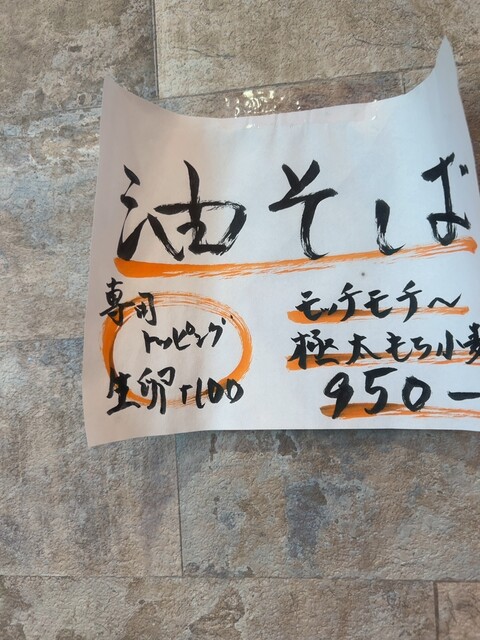 油そば
専用
トッピング
生卵+100
モッチモチ〜
極太もち小麦
950ー